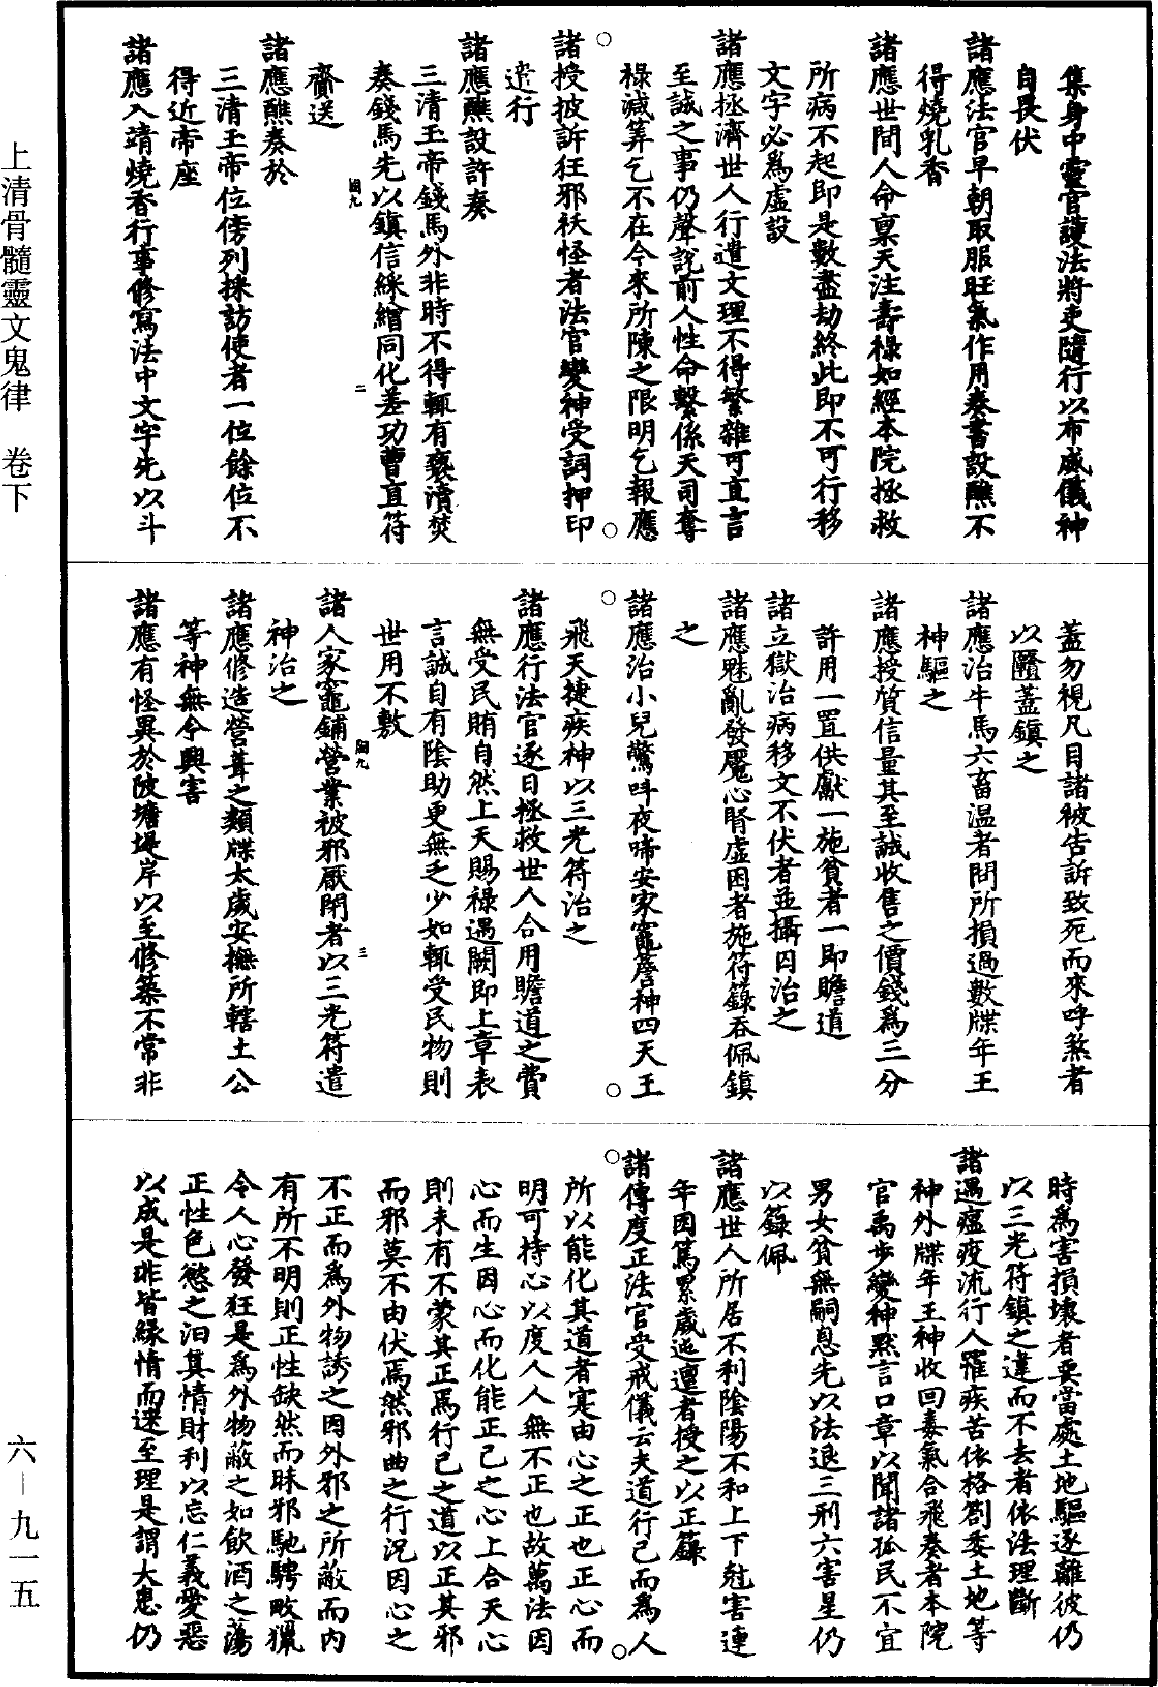 集身中靈官護法將吏隨行以布威儀神
自畏伏
諸應法官早朝取服旺氣作用奏書設醮不
得燒乳香
諸應世間人命稟天注壽祿如經本院拯救
所病不起即是數盡劫終此即不可行移
文字必為虛設
諸應拯濟世人行遣文理不得繁雜可直言
至誠之事仍聲說前人性命繫係天司奪
祿減筭乞不在今來所陳之限明乞報應
諸授披訴狂邪祅怪者法官變神受詞押印
逩行
諸應醮設許奏
三清玉帝錢馬外非時不得輒有褻瀆焚
奏錢馬先以鎮信綵繒同化差功曹直符
齎送
諸應醮奏於
三清玉帝位傍列採訪使者一位餘位不
得近帝座
諸應入靖燒香行事修寫法中文字先以斗
蓋勿視凡目諸被告訴致死而來呼煞者
以圝蓋鎮之
諸應治牛馬六畜溫者問所損過數牒年王
神驅之
諸應授質信量其至誠收售之價錢為三分
許用一置供獻一施貧者一即贍道
諸立獄治病移文不伏者並攝囚治之
諸應魅亂發魘心腎虛困者施符籙吞佩鎮
之
諸應治小兒驚呌夜啼安家竈詹神四天王
飛天捷疾神以三光符治之
諸應行法官逐日拯救世人合用贍道之費
無受民賄自然上天賜祿遇闕即上章表
言誠自有陰助更無乏少如輒受民物則
世用不敷
諸人家竈鋪營業被邪厭閉者以三光符遣
神治之
諸應修造營葺之類牒太歲安撫所轄土公
等神無令興害
諸應有怪異於陂塘堤岸以至修築不常非
時為害損壞者要當處土地驅逐離彼仍
以三光符鎮之違而不去者依法理斷
諸遇瘟疫流行人罹疾苦依格劄委土地等
神外牒年王神收回毒氣合飛奏者本院
官禹步變神黙言口章以聞諸孤民不宜
男女貧無嗣息先以法退三刑六害星仍
以籙佩
諸應世人所居不利陰陽不和上下尅害連
年因篤累歲迍邅者授之以正籙
諸傳度正法官受戒儀云夫道行己而為人
所以能化其道者寔由心之正也正心而
明可持心以度人人無不正也故萬法因
心而生因心而化能正己之心上合天心
則未有不蒙其正焉行己之道以正其邪
而邪莫不由伏焉然邪曲之行況因心之
不正而為外物誘之因外邪之所蔽而內
有所不明則正性缺然而昧邪馳騁畋獵
令人心發狂是為外物蔽之如飲酒之蕩
正性色慾之汩真情財利以忘仁義愛惡
以成是非皆緣情而遝至理是謂大患仍
上清骨髓靈文鬼律　卷下
六－九一五